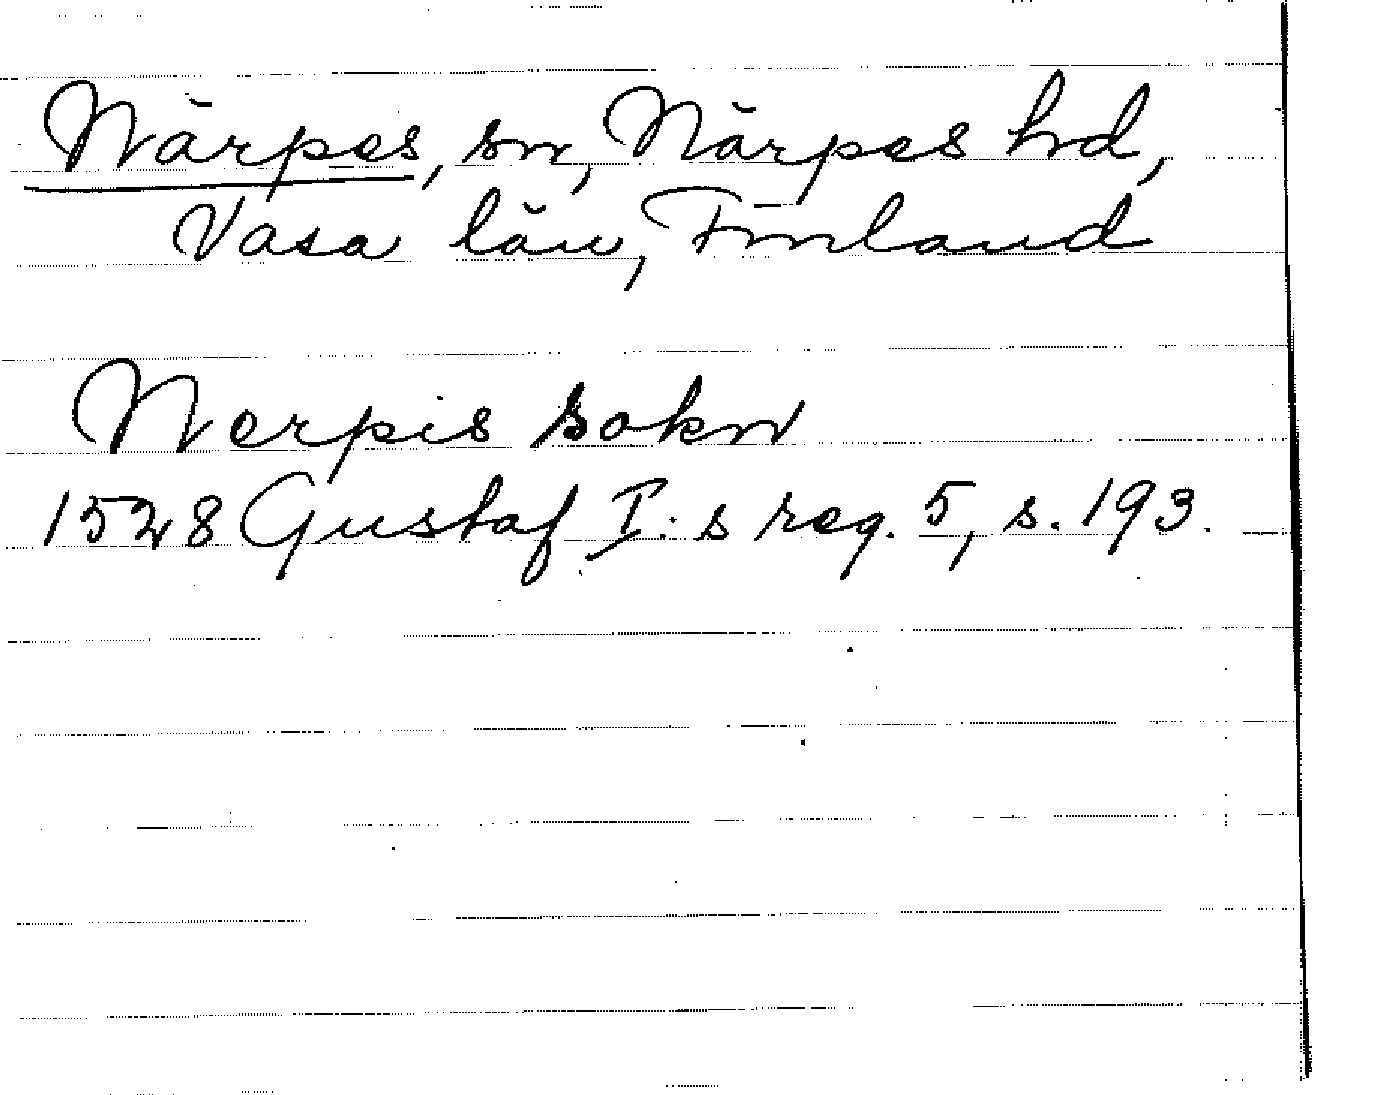 Närpes, sn, Närpes hd,
Vasa län, Finland
Nerpis sokn
1528 Gustaf I:s reg. 5, s. 193.